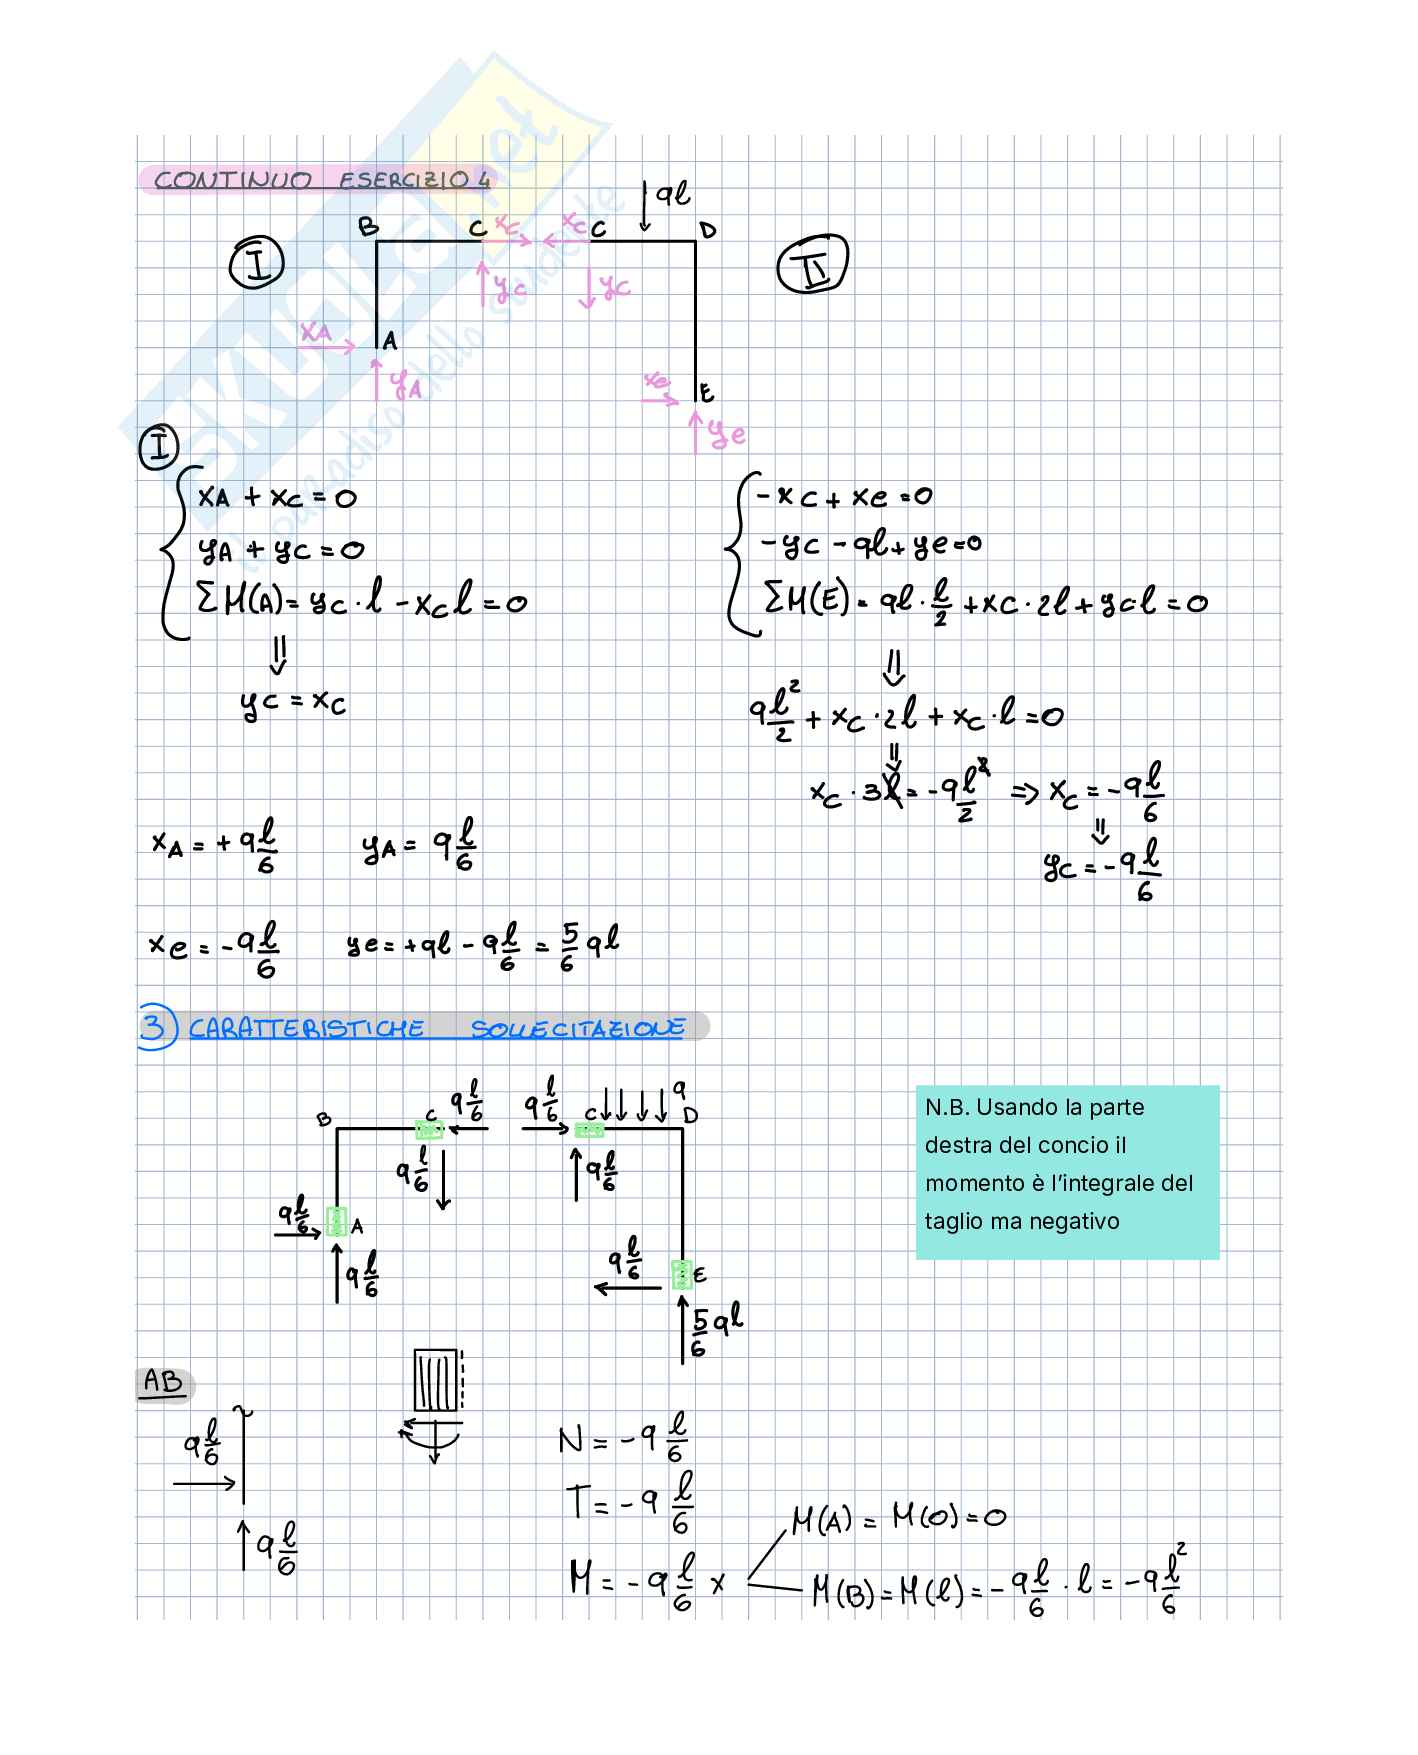 CONTINUO ESERCIZIO 4
ql
B C xc xc C D
I II
yc yc
xA A
yA
xe E
ye
I
xA + xc = 0
yA + yc = 0
ΣM(A) = yc · l - xc l = 0
⇓
yc = xc
-xc + xe = 0
-yc - ql + ye = 0
ΣM(E) = ql · l/2 + xc · 2l + yc l = 0
⇓
ql²/2 + xc · 2l + xc · l = 0
⇓
xc · 3l = -ql²/2 ⇒ xc = -q l/6
⇓
yc = -q l/6
xA = + q l/6 yA = q l/6
xe = - q l/6 ye = + ql - q l/6 = 5/6 ql
3) CARATTERISTICHE SOLLECITAZIONE
B C q l/6 q l/6 C q D
q l/6 q l/6
q l/6 A
q l/6
q l/6 E
5/6 ql
N.B. Usando la parte
destra del concio il
momento è l'integrale del
taglio ma negativo
AB
q l/6
q l/6
N = - q l/6
T = - q l/6
M = - q l/6 x
M(A) = M(0) = 0
M(B) = M(l) = - q l/6 · l = - q l²/6
SKUOLA.net
il paradiso dello studente